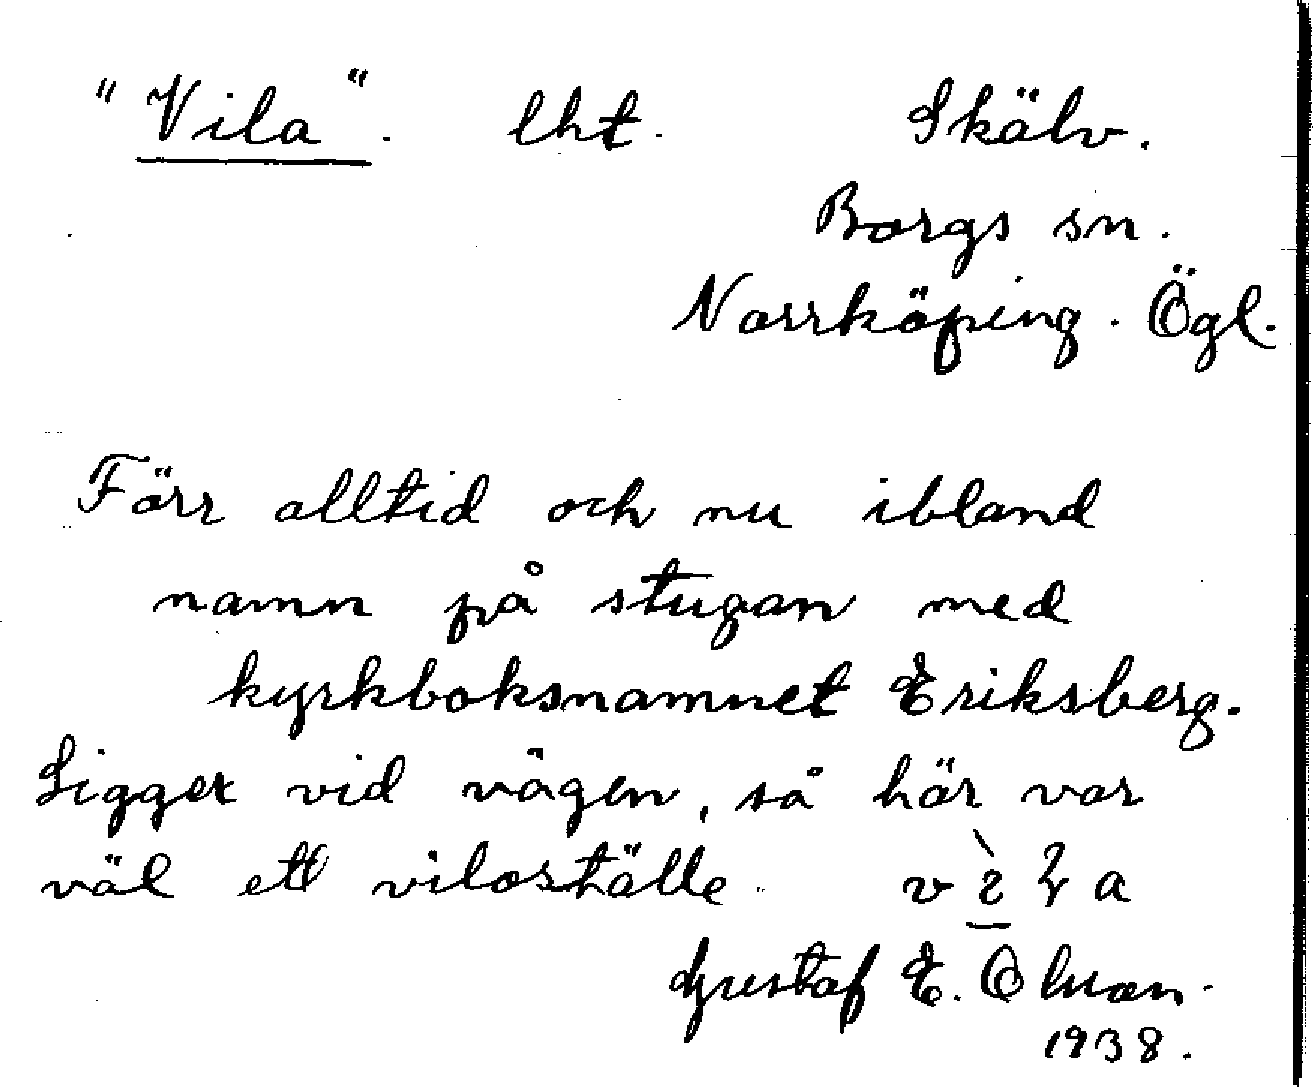 "Vila". lht. Skälv.
Borgs sn.
Norrköping. Ögl.
Förr alltid och nu ibland
namn på stugan med
kyrkboksnamnet Eriksberg.
Ligger vid vägen, så här var
väl ett viloställe.
Gustaf E. Olsson.
1938.